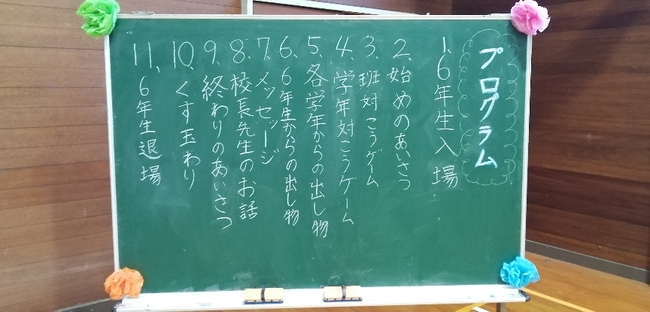 プログラム
1、6年生入場
2、始めのあいさつ
3、班対こうゲーム
4、学年対こうゲーム
5、各学年からの出し物
6、6年生からの出し物
7、メッセージ
8、校長先生のお話
9、終わりのあいさつ
10、くす玉わり
11、6年生退場